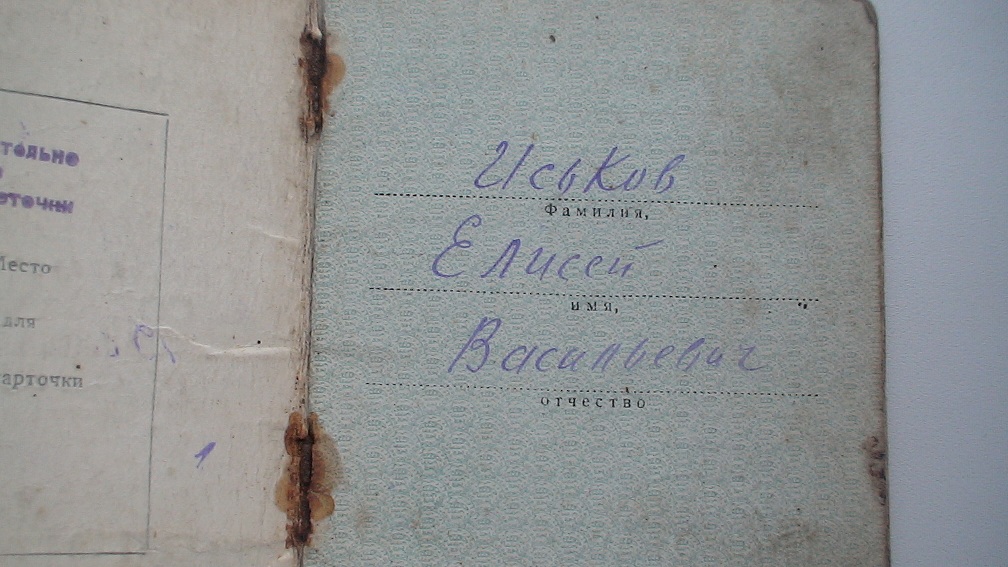 тольно
еточки
Место
для
арточки
1
Иськов
Фамилия,
Елисей
имя,
Васильевич
отчество